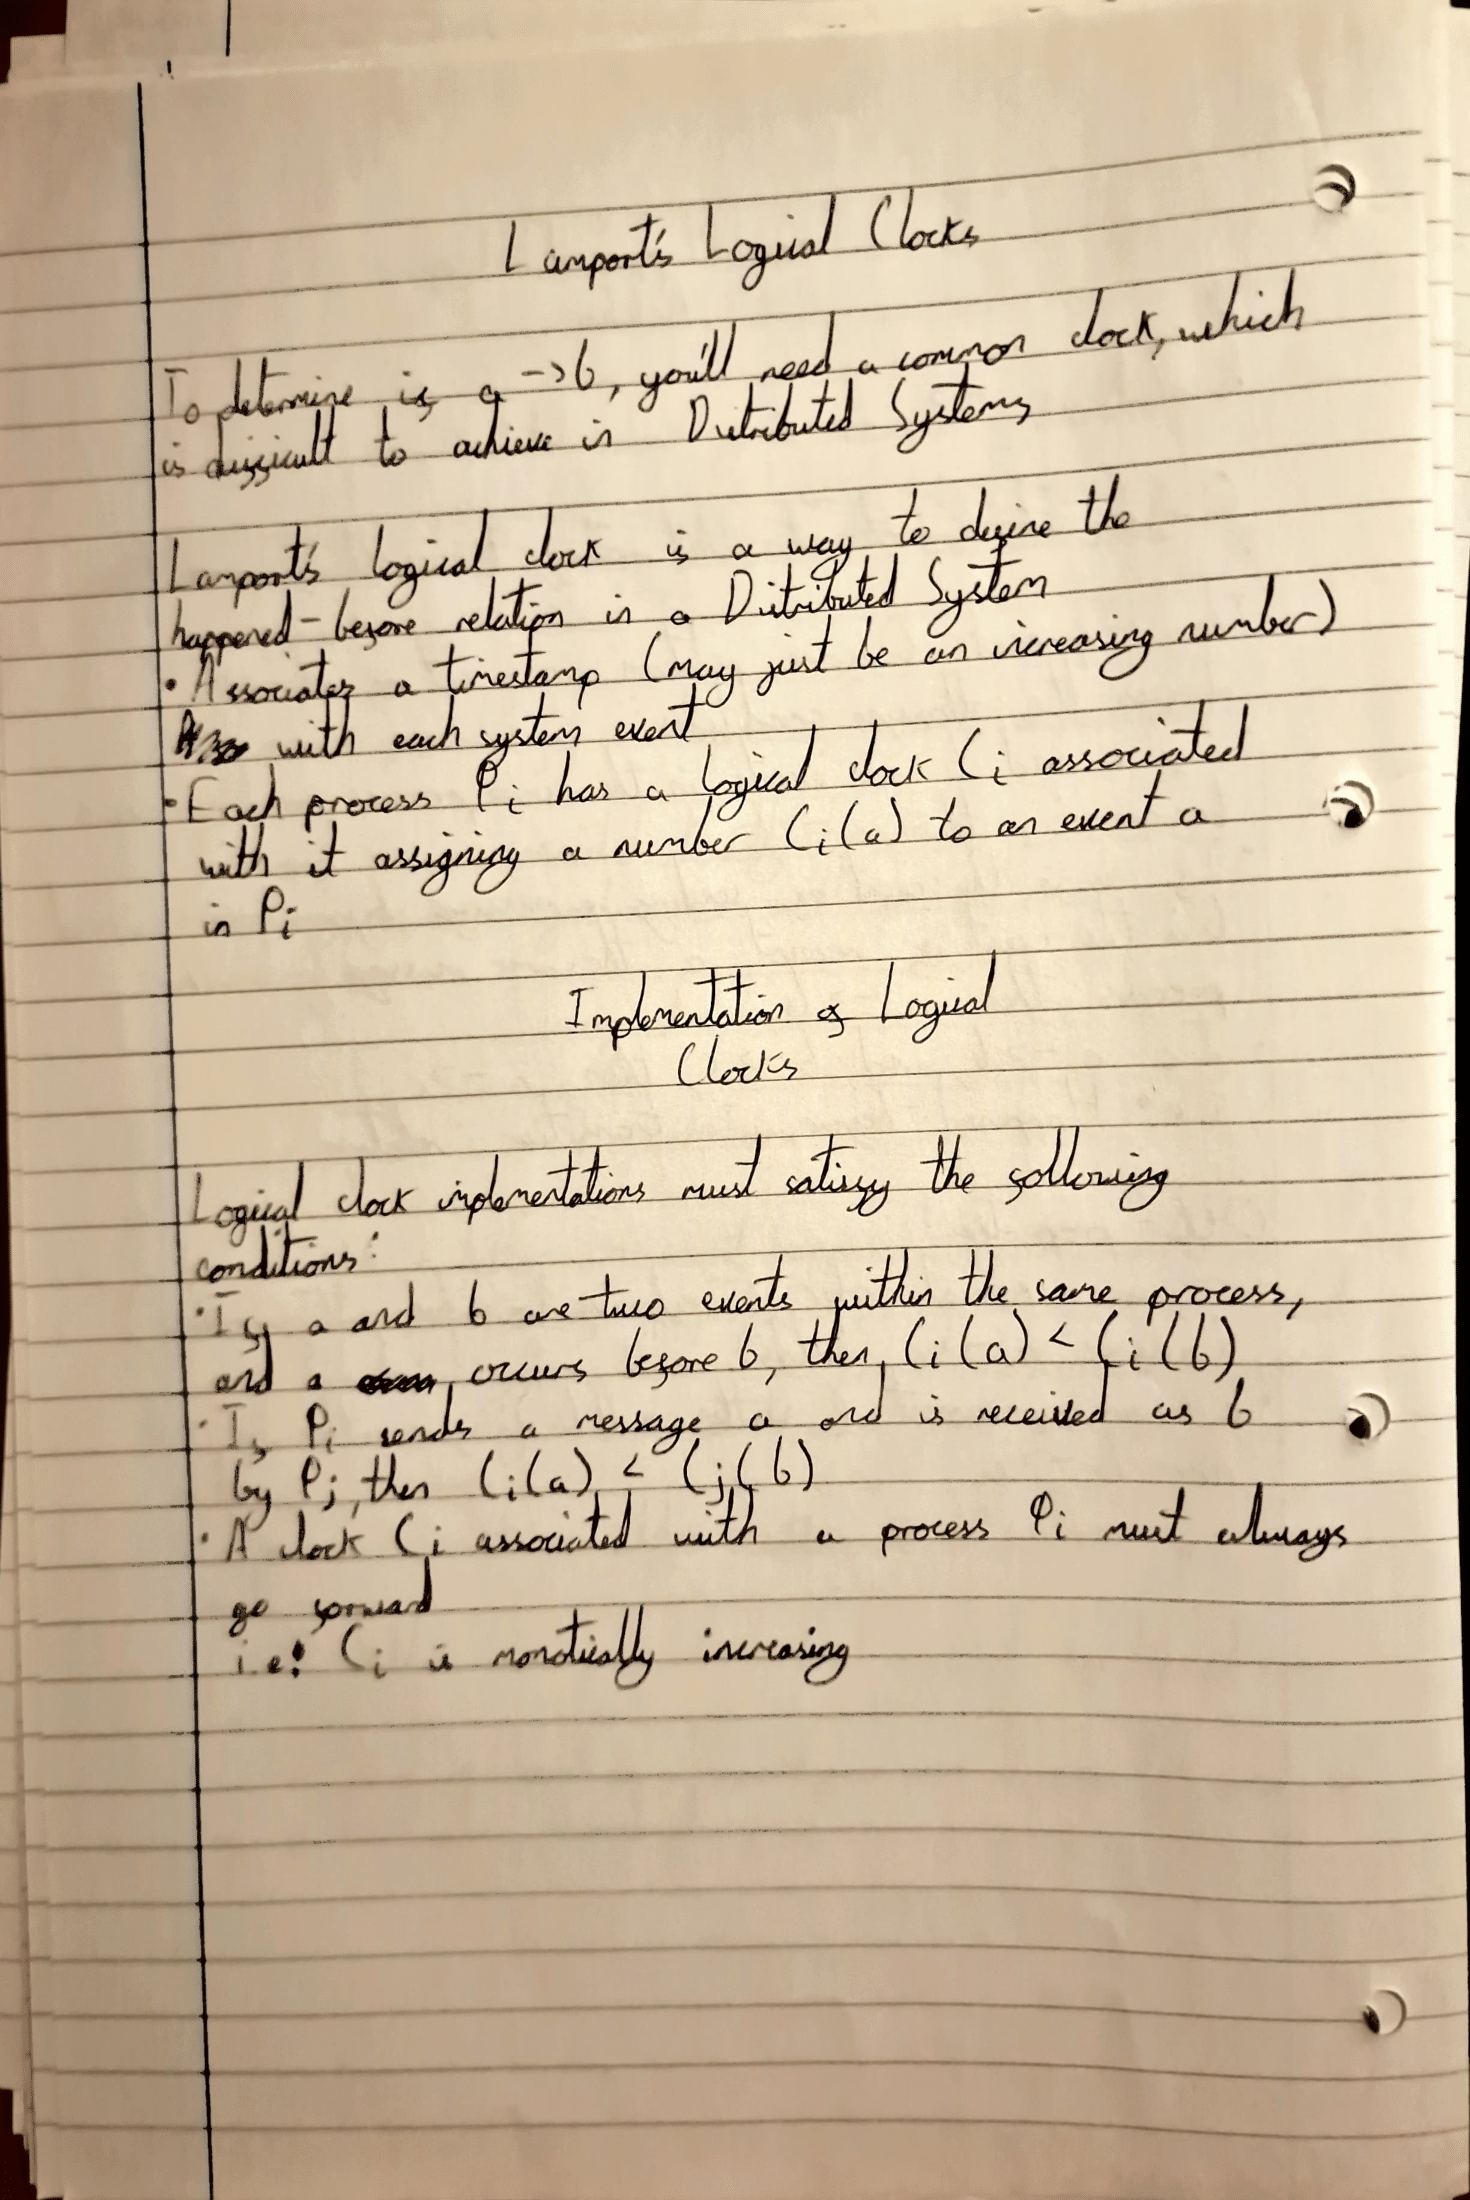 Lamport's Logical Clocks
To determine if a -> b, you'll need a common clock, which
is difficult to achieve in Distributed Systems
Lamport's logical clock is a way to define the
happened-before relation in a Distributed System
• Associates a timestamp (may just be an increasing number)
with each system event
• Each process Pi has a logical clock Ci associated
with it assigning a number Ci(a) to an event a
in Pi
Implementation of Logical
Clocks
Logical clock implementations must satisfy the following
conditions:
• If a and b are two events within the same process,
and a occurs before b, then Ci(a) < Ci(b)
• If Pi sends a message a and is received as b
by Pj, then Ci(a) < Cj(b)
• A clock Ci associated with a process Pi must always
go forward
i.e: Ci is monotically increasing